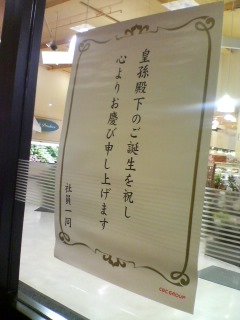 皇孫殿下のご誕生を祝し
心よりお慶び申し上げます
社員一同
CGC GROUP